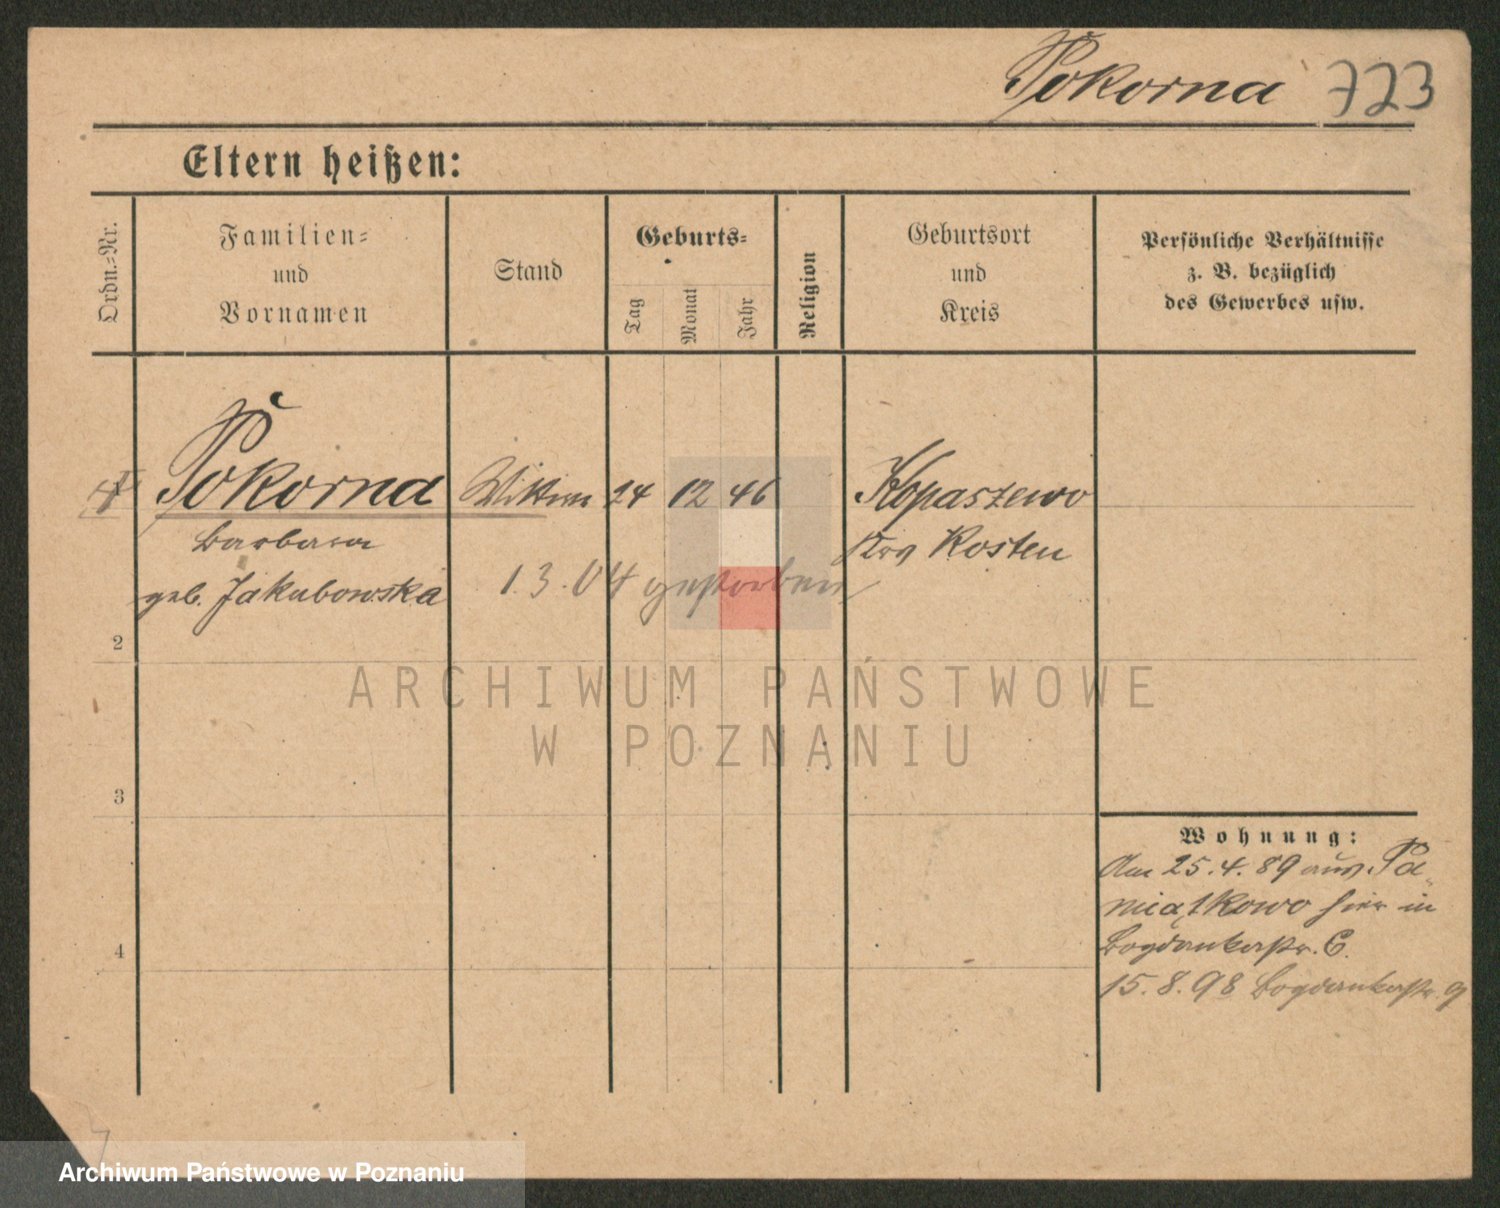 Pokorna 723
Eltern heißen:
Ordn.-Nr.
Familien-
und
Vornamen
Stand
Geburts-
Tag
Monat
Jahr
Religion
Geburtsort
und
Kreis
Persönliche Verhältnisse
z. B. bezüglich
des Gewerbes usw.
Pokorna Wittwe 24 12 46 Kopaszewo
Barbara Krs Kosten
geb. Jakubowska 1.3.04 gestorben
2
ARCHIWUM PAŃSTWOWE
W POZNANIU
3
Wohnung:
Am 25.4.89 aus Pa-
miątkowo hier in
Bogdankastr. 6.
4
15.8.98 Bogdankastr. 9
Archiwum Państwowe w Poznaniu